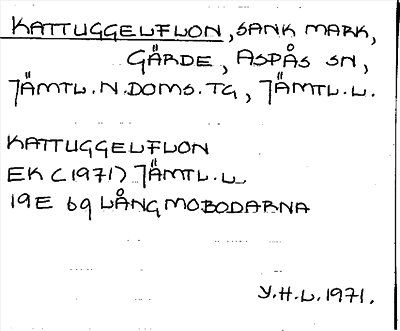 KATTUGGELFLON, SANK MARK,
GÄRDE, ASPÅS SN,
JÄMTL.N.DOMS.TG, JÄMTL.L.
KATTUGGELFLON
EK (1971) JÄMTL.L
19E 6g LÅNGMOBODARNA
Y.H.L.1971.